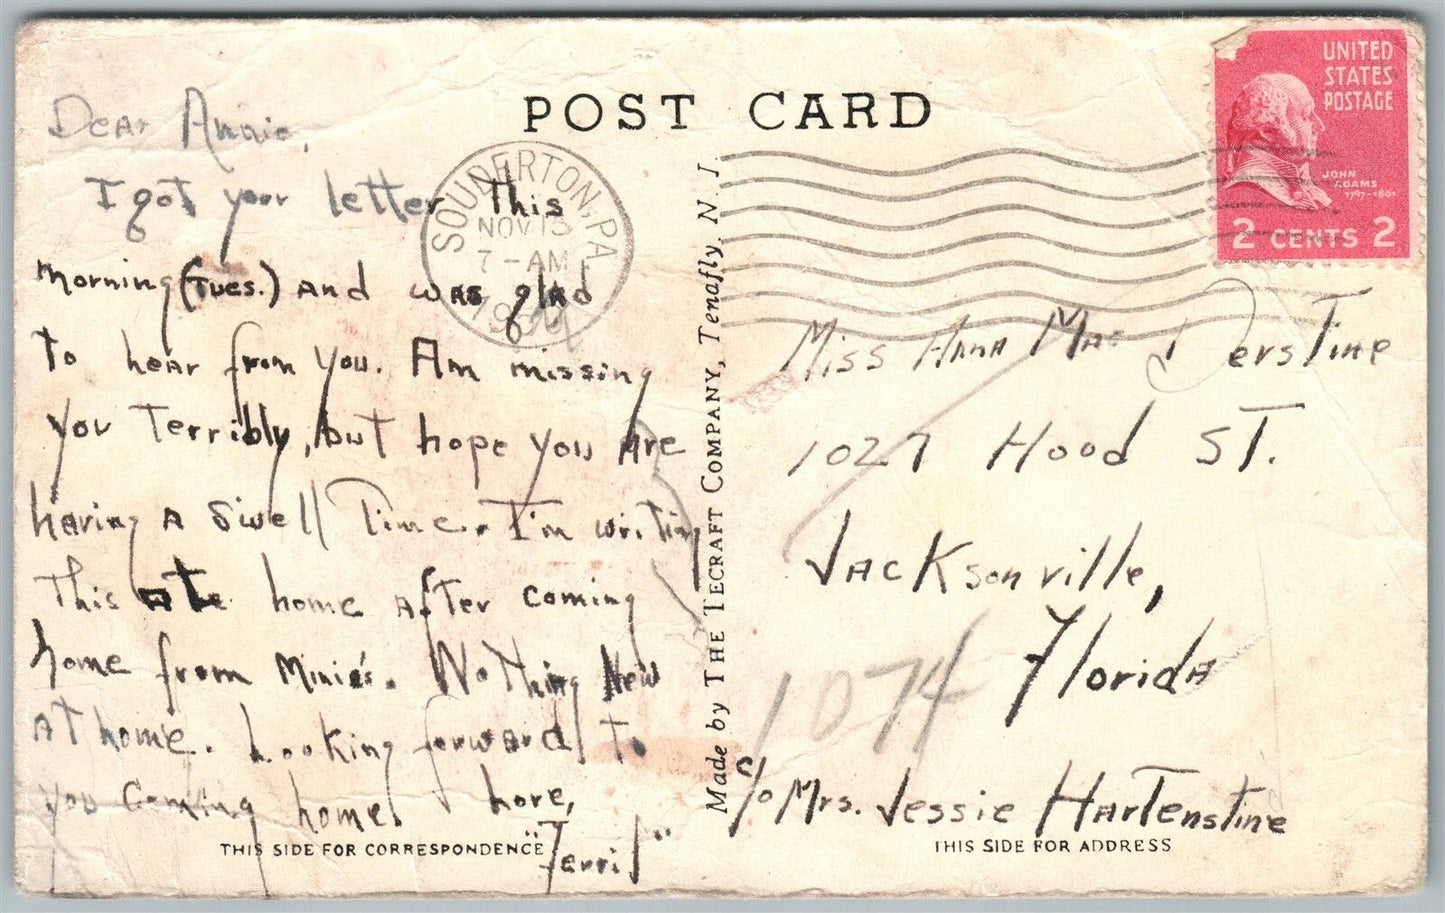 POST CARD
UNITED
STATES
POSTAGE
JOHN
ADAMS
1797-1801
2 CENTS 2
SOUDERTON, PA.
NOV 13
7 - AM
Dear Annie,
I got your letter this
morning (Tues.) and was glad
to hear from you. Am missing
you terribly, but hope you are
having a swell time. I'm writing
this at home after coming
home from Minie's. Nothing New
at home. Looking forward to
you coming home. Love,
THIS SIDE FOR CORRESPONDENCE
Made by THE TECRAFT COMPANY, Tenafly, N. J.
Miss Anna Mae Derstine
1027 Hood St.
Jacksonville,
Florida
1074
c/o Mrs. Jessie Hartenstine
THIS SIDE FOR ADDRESS